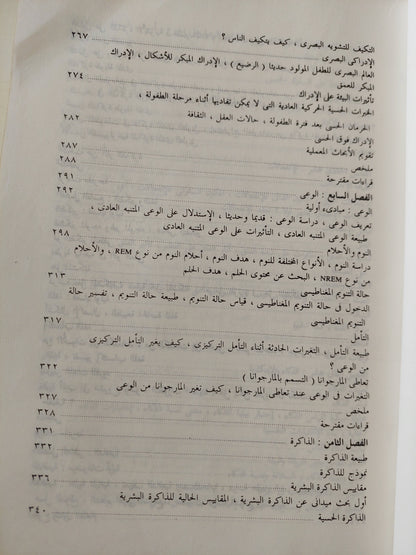 التكيف للتشويه البصرى ، كيف يتكيف الناس ؟
الإدراكى البصرى ٢٦٧
العالم البصرى للطفل المولود حديثا ( الرضيع ) ، الإدراك المبكر للأشكال ، الإدراك
المبكر للعمق
تأثيرات البيئة على الإدراك ٢٧٤
الخبرات الحسية الحركية العادية التى لا يمكن تفاديها أثناء مرحلة الطفولة ،
الحرمان الحسى بعد فترة الطفولة ، حالات العقل ، الثقافة
الإدراك فوق الحسى ٢٨٢
تقويم الأبحاث المعملية
ملخص ٢٨٧
قراءات مقترحة ٢٨٨
الفصل السابع : الوعى ٢٩١
الوعى : مبادىء أولية ٢٩٢
تعريف الوعى ، دراسة الوعى : قديما وحديثا ، الإستدلال على الوعى المنتبه العادى ،
طبيعة الوعى المنتبه العادى ، التأثيرات على الوعى المنتبه العادى
النوم والأحلام ٢٩٨
دراسة النوم ، الأنواع المختلفة للنوم ، هدف النوم ، أحلام النوم من نوع REM ، والأحلام
من نوع NREM ، البحث عن محتوى الحلم ، هدف الحلم
حالة التنويم المغناطيسى ٣١٣
الدخول فى حالة التنويم المغناطيسى ، قياس حالة التنويم ، طبيعة حالة التنويم ، تفسير حالة
التنويم المغناطيسى
التأمل ٣١٧
طبيعة التأمل ، التغيرات الحادثة أثناء التأمل التركيزى ، كيف يغير التأمل التركيزى
من الوعى ؟
تعاطى المارجوانا ( التسمم بالمارجوانا ) ٣٢٢
التغيرات فى الوعى عند تعاطى المارجوانا ، كيف تغير المارجوانا من الوعى
ملخص ٣٢٧
قراءات مقترحة ٣٢٨
الفصل الثامن : الذاكرة ٣٣١
طبيعة الذاكرة ٣٣٢
نموذج للذاكرة
مقاييس الذاكرة البشرية ٣٣٦
أول بحث ميدانى عن الذاكرة البشرية ، المقاييس الحالية للذاكرة البشرية
الذاكرة الحسية ٣٤٠